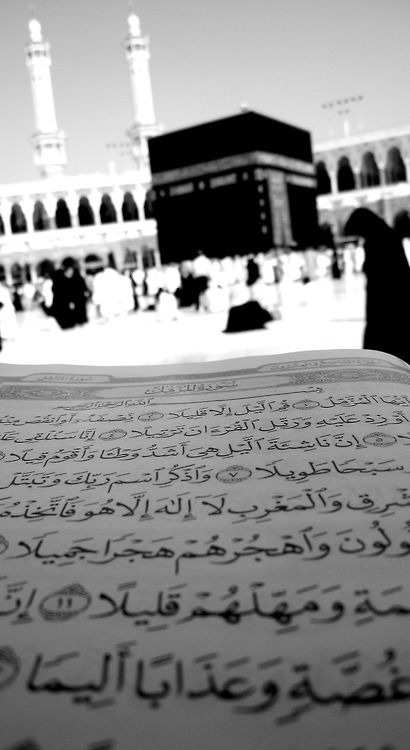 سُورَةُ المُزَّمِّلِ
يُّهَا ٱلْمُزَّمِّلُ ١ قُمِ ٱلَّيْلَ إِلَّا قَلِيلًا ٢ نِّصْفَهُۥٓ أَوِ ٱنقُصْ مِنْهُ
أَوْ زِدْ عَلَيْهِ وَرَتِّلِ ٱلْقُرْءَانَ تَرْتِيلًا ٤ إِنَّا سَنُلْقِى عَ
٥ إِنَّ نَاشِئَةَ ٱلَّيْلِ هِىَ أَشَدُّ وَطْـًٔا وَأَقْوَمُ قِيلًا
سَبْحًا طَوِيلًا ٧ وَٱذْكُرِ ٱسْمَ رَبِّكَ وَتَبَتَّلْ
شْرِقِ وَٱلْمَغْرِبِ لَآ إِلَـٰهَ إِلَّا هُوَ فَٱتَّخِذْهُ
ولُونَ وَٱهْجُرْهُمْ هَجْرًا جَمِيلًا
مَةِ وَمَهِّلْهُمْ قَلِيلًا ١١ إِنَّ
غُصَّةٍ وَعَذَابًا أَلِيمًا